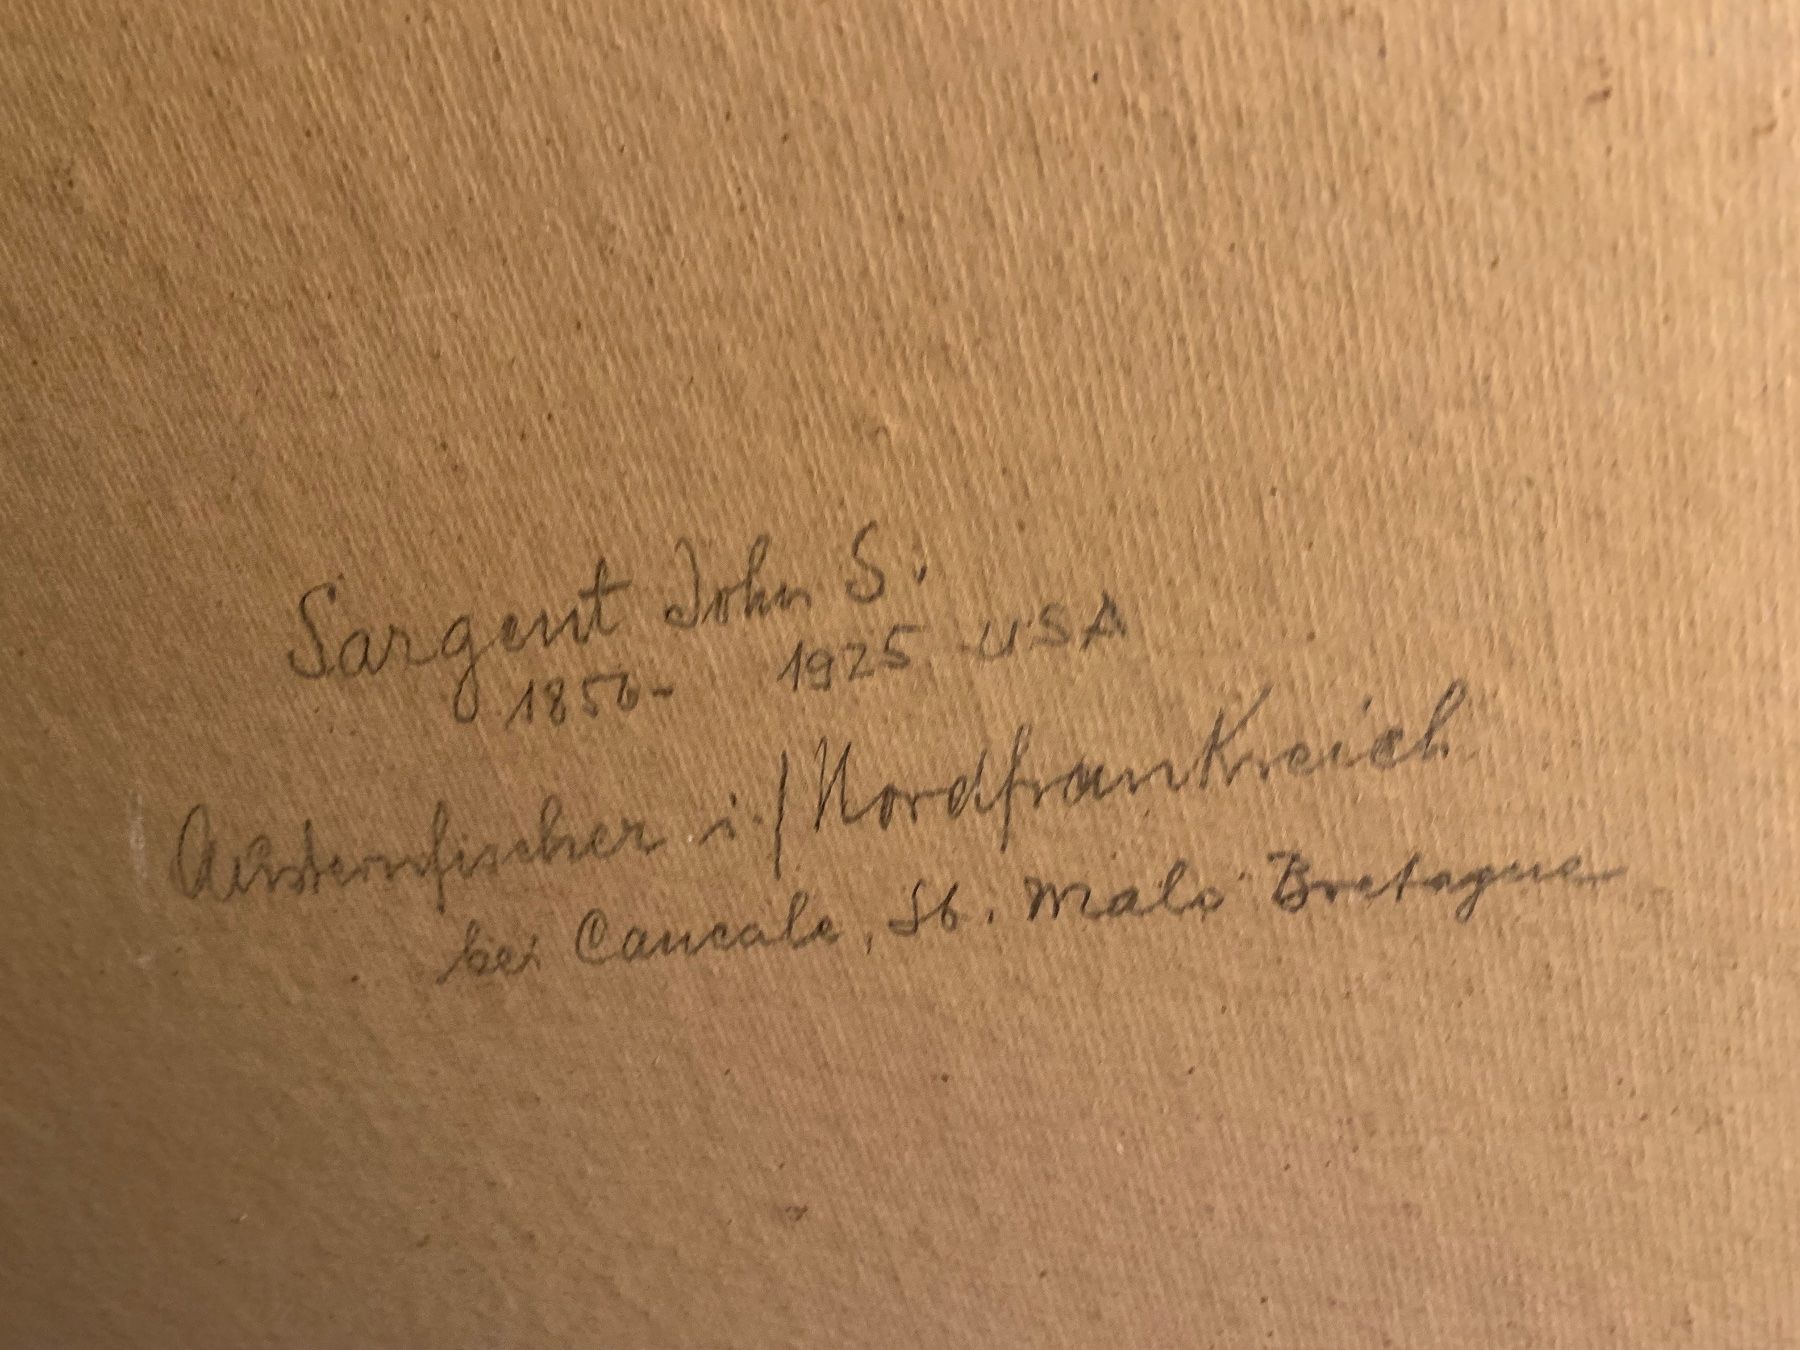 Sargent John S.
1856- 1925 USA
Austernfischer i./Nordfrankreich
bei Cancale, St. Malo Bretagne